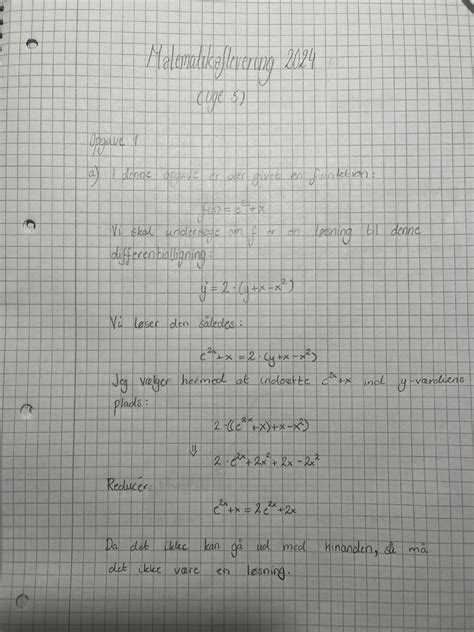 Matematikaflevering 2024
(uge 5)
Opgave 1
a) I denne opgave er der givet en funktion:
f(x) = e^2x + x
Vi skal undersøge om f er en løsning til denne
differentialligning:
y' = 2 · (y + x - x²)
Vi løser den således:
e^2x + x = 2 · (y + x - x²)
Jeg vælger hermed at indsætte e^2x + x ind y-værdiens
plads:
2 · ((e^2x + x) + x - x²)
⇓
2 · e^2x + 2x² + 2x - 2x²
Reducér
e^2x + x = 2e^2x + 2x
Da det ikke kan gå ud med hinanden, så må
det ikke være en løsning.